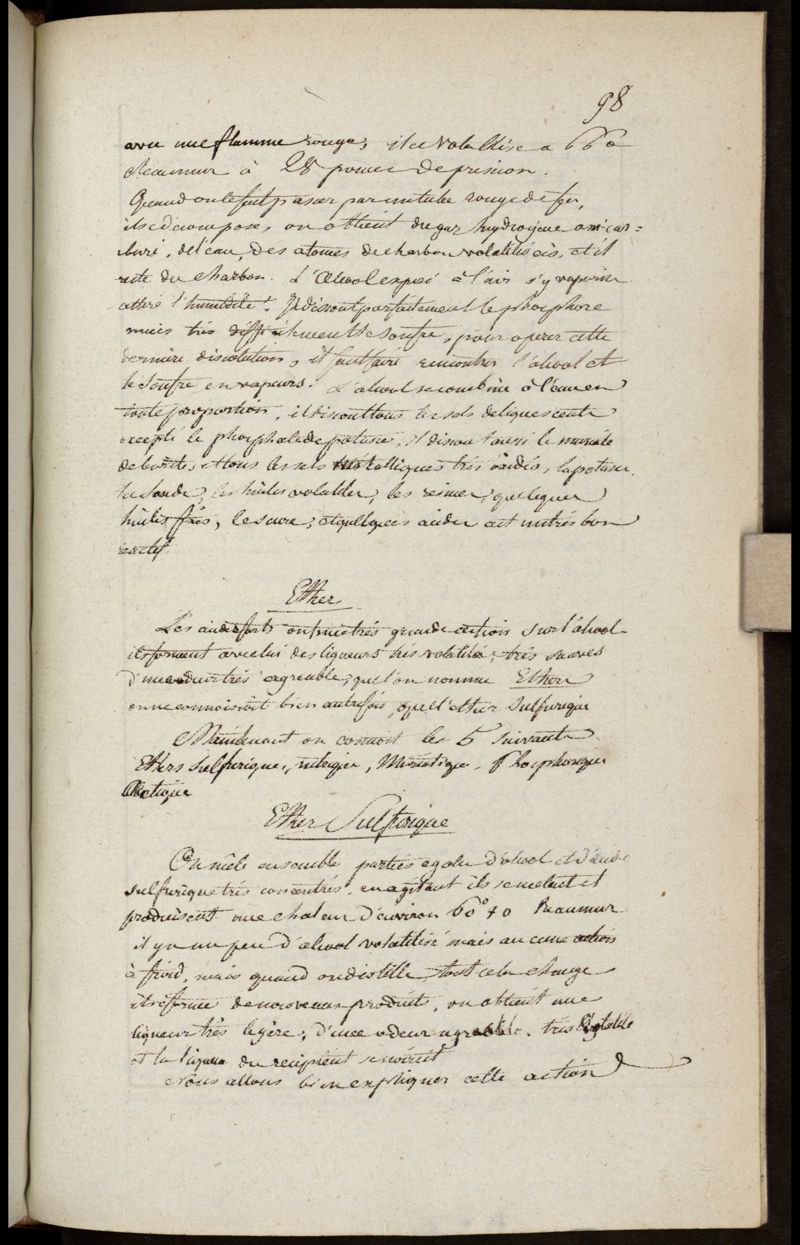 98
avec une flamme rouge, il se volatilise a 66°
Reaumur à 28 pouces de pression.
Quand on le fait passer par un tube rouge de fer,
il se décompose, on obtient du gaz hydrogene oxi car=
buré, de l'eau, des atomes de charbon volatilisés, et il
reste du charbon. L'alcool exposé à l'air s'y vaporise
attire l'humidité. Il dissout parfaitement le phosphore
mais très difficilement le soufre, pour operer cette
dernière dissolution, il faut faire rencontrer l'alcool et
le soufre en vapeurs. L'alcool se combine à l'eau en
toute proportion, il dissout tous les sels deliquescents
excepté le phosphate de potasse, il dissout aussi le muriate
de et tous les sels metalliques très oxidés, la potasse
la soude, les huiles volatiles, les resines, quelques
huiles fixes, le sucre, et quelques acides est un très bon
reactif.
Ether
Les acides forts ont une très grande action sur l'alcool
ils forment avec lui des liqueurs très volatiles, très suaves
d'une odeur très agreable, que l'on nomme Ethers
on ne connoissoit bien autrefois, que l'ether sulfurique
Maintenant on connoit les 5 suivants
Ethers sulfurique, nitrique, Muriatique, Phosphorique
Acetique
Ether Sulfurique
On mêle ensemble parties egales d'alcool et d'acide
sulfurique très concentrés, en agitant ils se melent et
produisent une chaleur d'environ 60° 70 Reaumur
il y a un peu d'alcool volatilisé mais aucune action
à froid, mais quand on distille tout cela change
il se forme de nouveaux produits, on obtient une
liqueur très legère, d'une odeur agreable, très
et la liqueur du recipient se noircit
Nous allons bien expliquer cette action